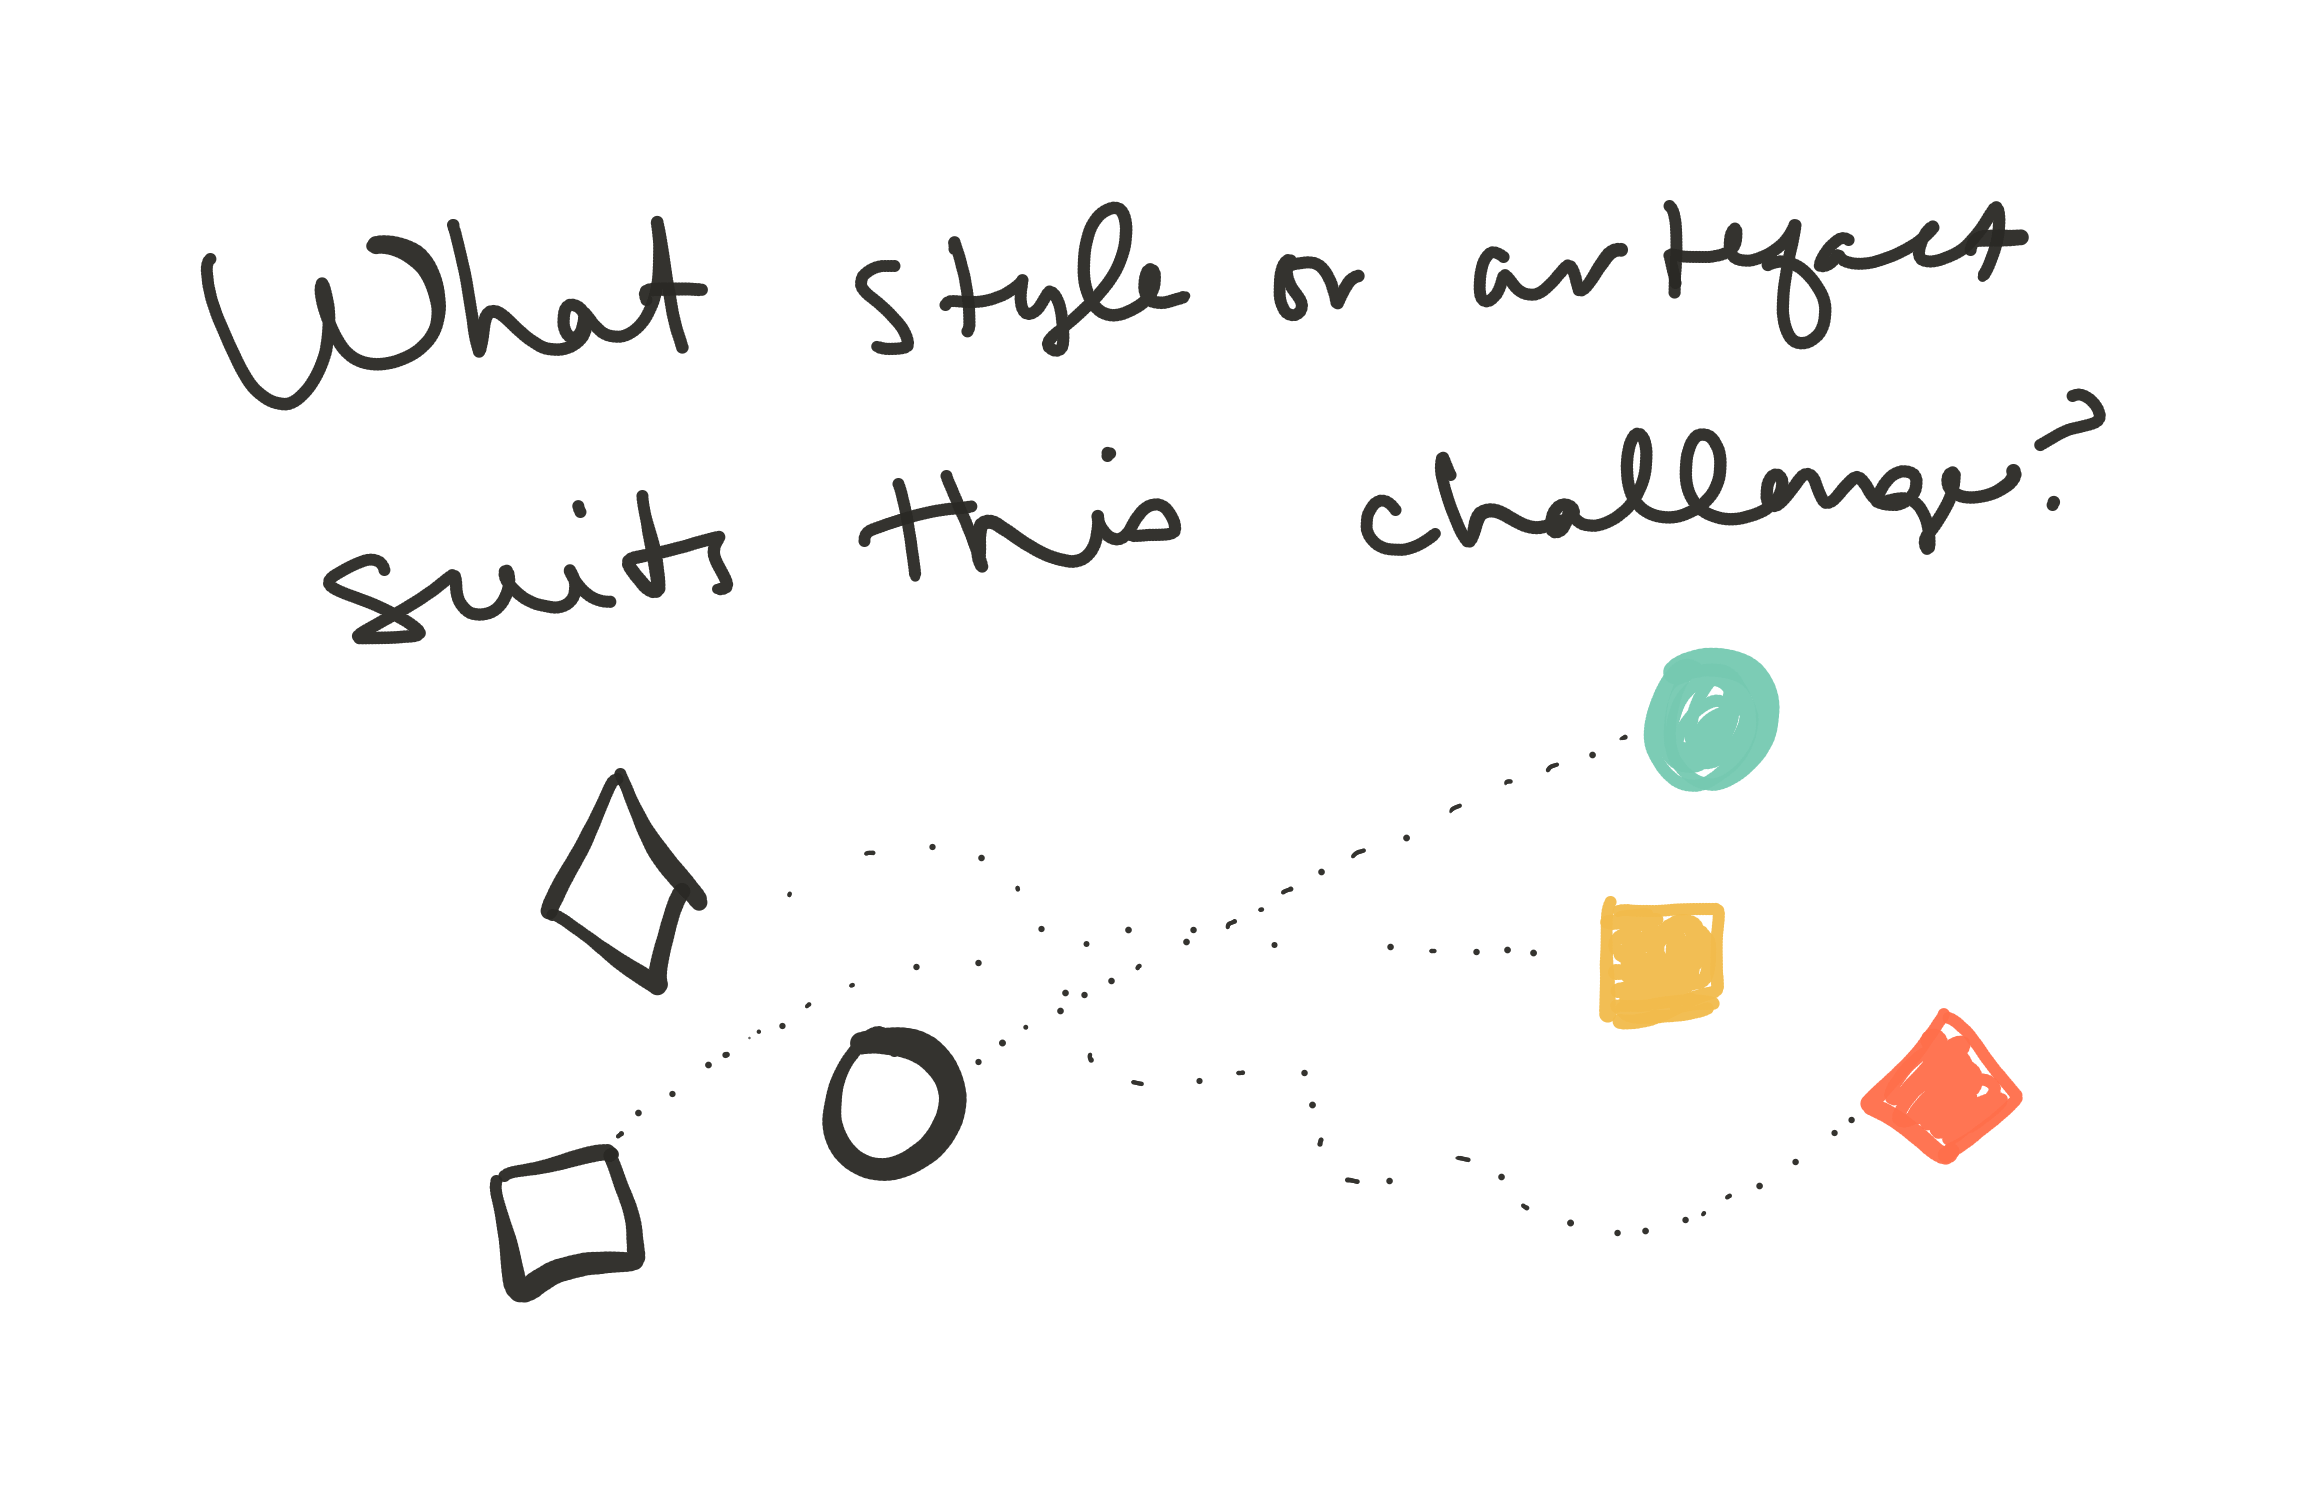 What style or artefact
suits this challenge?